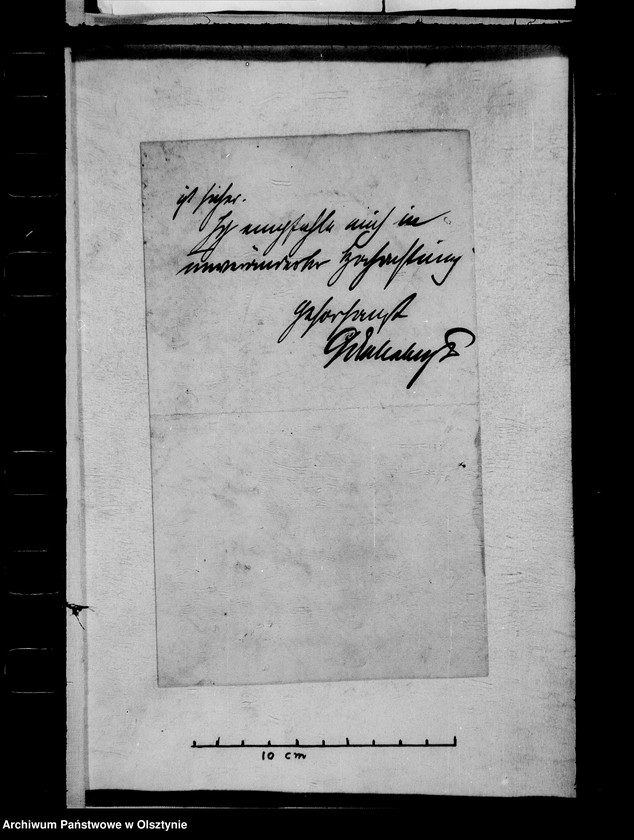 ist sicher.
Ich empfehle mich in
unveränderter Hochachtung
gehorsamst
10 cm
Archiwum Państwowe w Olsztynie